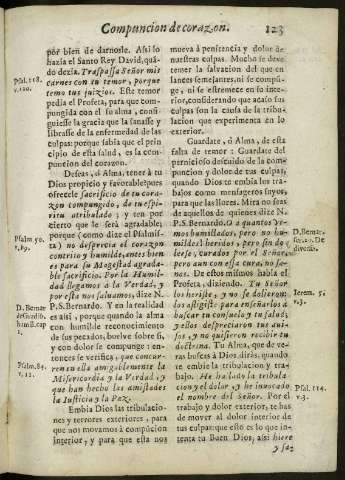 Compuncion de coraçon. 123
por bien de darnosle. Assi lo
hazia el Santo Rey David, quã
do dezia. Traspassa Señor mis
carnes con tu temor, porque
temo tus juizios. Este temor
pedia el Profeta, para que com-
pungida con el su alma, consi-
guiesse la gracia que la sanasse y
librasse de la enfermedad de las
culpas: porque sabia que el prin-
cipio de esta salud, es la com-
puncion del coraçon.
Psal. 118.
v. 120.
Deseas, ò Alma, tener à tu
Dios propicio y favorable? pues
ofrecele sacrificio de tu cora-
çon compungido, de tu espi-
ritu atribulado; y ten por
cierto que le serà agradable;
porque (como dize el Psalmis-
ta) no desprecia el coraçon
contrito y humilde, antes bien
es para su Magestad agrada-
ble sacrificio. Por la Humil-
dad llegamos à la Verdad, y
por esta nos salvamos, dize N.
P. S. Bernardo. Y en la realidad
es assi, porque quando la alma
con humilde reconocimiento
de sus pecados, buelve sobre si,
y con dolor se compunge: en-
tonces se verifica, que concur-
rieron en ella amigablemente la
Misericordia y la Verdad, y
que han hecho las amistades
la Iusticia y la Paz.
Psalm. 50.
v. 19.
D. Bernar.
humil. cap
1.
Psalm. 84.
v. 11.
Embia Dios las tribulacio-
nes y terrores exteriores, para
que nos movamos à compuncion
interior, y para que esta nos
mueva à penitencia y dolor de
nuestras culpas. Mucho se deve
temer la salvacion del que en
lances semejantes, ni se compun-
ge, ni se estremece en su inte-
rior, considerando que acaso sus
culpas son la causa de la tribu-
lacion que experimenta en lo
exterior.
Guardate, ò Alma, de esta
falta de temor: Guardate del
pernicioso descuido de la com-
puncion y dolor de tus culpas,
quando Dios te embia los tra-
bajos como mensageros suyos,
para que las llores. Mira no seas
de aquellos de quienes dize N.
P. S. Bernardo. O à quantos ve-
mos humillados, pero no hu-
mildes! heridos, pero sin do-
lerse, curados por el Señor,
pero aun con essa cura, no sa-
nos. De estos mismos habla el
Profeta, diziendo. Tu Señor
los heriste, y no se dolieron;
los castigaste para enseñarlos à
buscar tu consuelo y tu salud;
y ellos despreciaron tus avi-
sos, y no quisieron recibir tu
doctrina. Tu Alma, que de ve-
ras buscas à Dios diràs, quando
te embie la tribulacion y tra-
bajo. He hallado la tribula-
cion y el dolor, y he invocado
el nombre del Señor. Por el
trabajo y dolor exterior, te has
de mover al dolor interior de
tus culpas: que esto es lo que in-
tenta tu Buen Dios, assi hiere
D. Bernar.
diversis.
Ierem. 5.
v. 3.
Psal. 114.
v. 3.